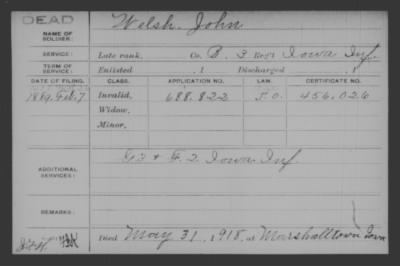 DEAD
Welsh, John
NAME OF SOLDIER:
SERVICE: Late rank, Co. B. 3 Reg't Iowa Inf.
TERM OF SERVICE: Enlisted , 1 Discharged , 1
DATE OF FILING. CLASS. APPLICATION NO. LAW. CERTIFICATE NO.
1889, Feb. 7 Invalid, 688.822 456.026
Widow,
Minor,
ADDITIONAL SERVICES: & F. 2. Iowa Inf.
REMARKS:
Died May 31, 1918, at Marshalltown Iowa